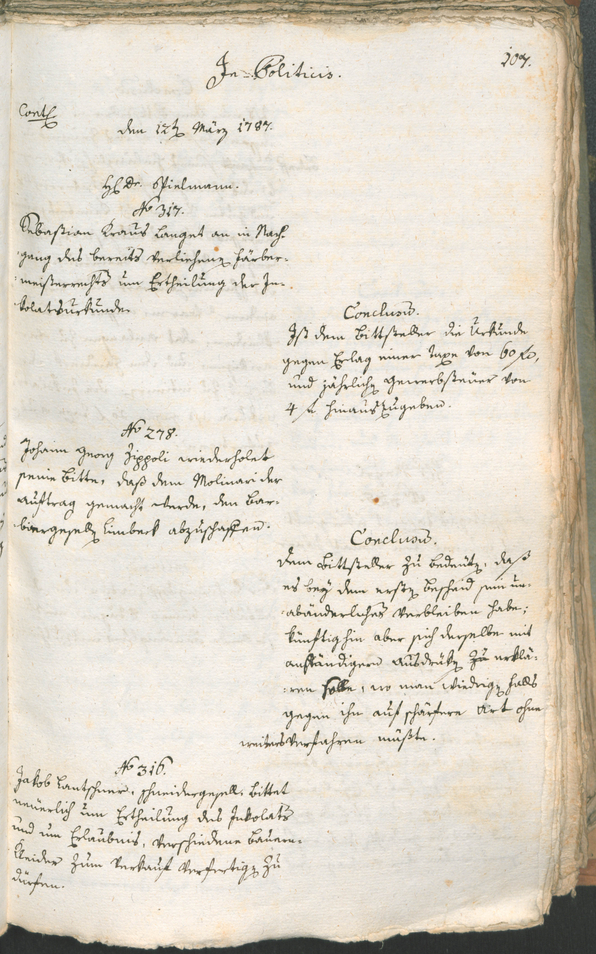 In Politicis.
107.
Cont
den 12t März 1787.
H. Dr. Spielmann.
No 317.
Sebastian Kraus langet an in Nach-
gang des bereits verliehenen Färber-
meisterrechts um Ertheilung der In-
kolatsurkunde.
Conclusum.
Ist dem Bittsteller die Urkunde
gegen Erlag einer Taxe von 60 fr,
und jährlichen Gewerbsteuer von
4 f hinauszugeben.
No 278.
Johann Georg Zippoli wiederholet
seine Bitte, daß dem Molinari der
Auftrag gemacht werde, den Bar-
biergesellen Limbeck abzuschaffen.
Conclusum.
Dem Bittsteller zu bedeuten, daß
es bey dem ersten Bescheid sein un-
abänderliches Verbleiben habe;
künftighin aber sich derselbe mit
anständigern Ausdrüken zu erklä-
ren habe, wo man widrigen Falls
gegen ihn auf schärfere Art ohne
weiters verfahren müßte.
No 316.
Jakob Lantschner, Schneidergesell, bittet
neuerlich um Ertheilung des Inkolats
und um Erlaubnis, verschiedene Bauern-
kleider zum Verkauf verfertigen zu
dürfen.